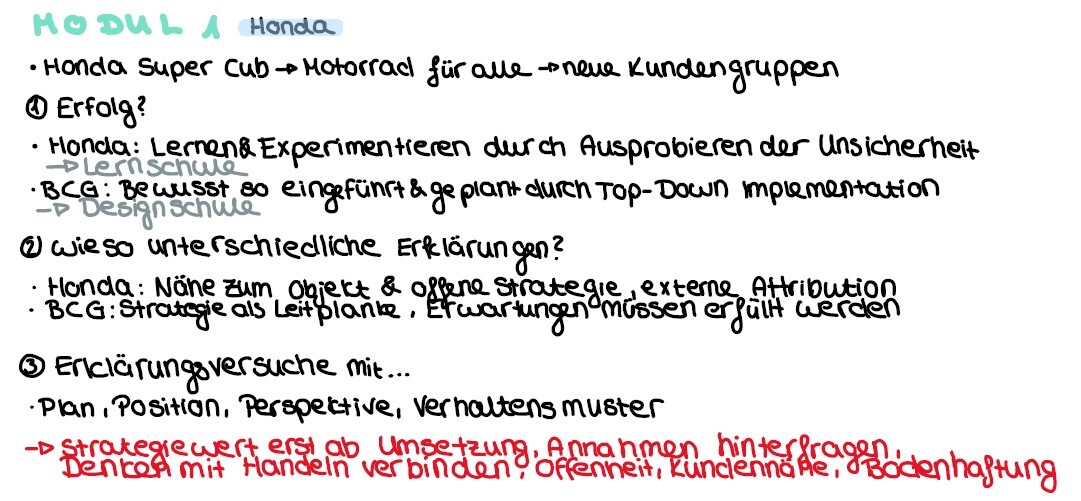 MODUL 1 Honda
• Honda Super Cub → Motorrad für alle → neue Kundengruppen
① Erfolg?
• Honda: Lernen & Experimentieren durch Ausprobieren der Unsicherheit
→ Lernschule
• BCG: Bewusst so eingeführt & geplant durch Top-Down Implementation
→ Designschule
② Wieso unterschiedliche Erklärungen?
• Honda: Nähe zum Objekt & offene Strategie, externe Attribution
• BCG: Strategie als Leitplanke, Erwartungen müssen erfüllt werden
③ Erklärungsversuche mit...
• Plan, Position, Perspektive, Verhaltensmuster
→ Strategiewert erst ab Umsetzung, Annahmen hinterfragen,
Denken mit Handeln verbinden, Offenheit, Kundennähe, Bodenhaftung